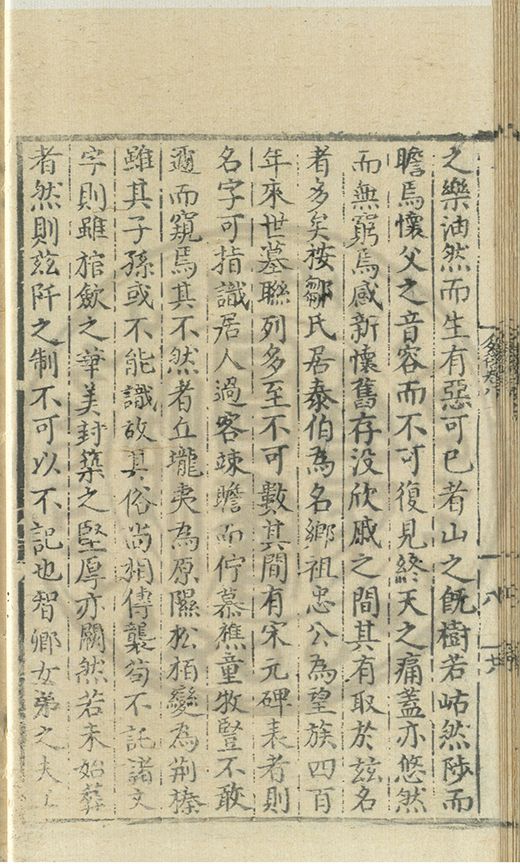 之樂油然而生有惡可已者山之旣樹若岵然陟而
瞻焉懷父之音容而不可復見終天之痛蓋亦悠然
而無窮焉感新懷舊存没欣戚之間其有取於兹名
者多矣按鄒氏居泰伯為名鄉祖忠公為望族四百
年來世墓聯列多至不可數其間有宋元碑表者則
名字可指識居人過客竦瞻而佇慕樵童牧豎不敢
邇而窺焉其不然者丘壠夷為原隰松栢變為荆榛
雖其子孫或不能識故其俗尚相傳襲茍不託諸文
字則雖棺歛之華美封築之堅厚亦闕然若未始葬
者然則兹阡之制不可以不記也智鄉女弟之夫